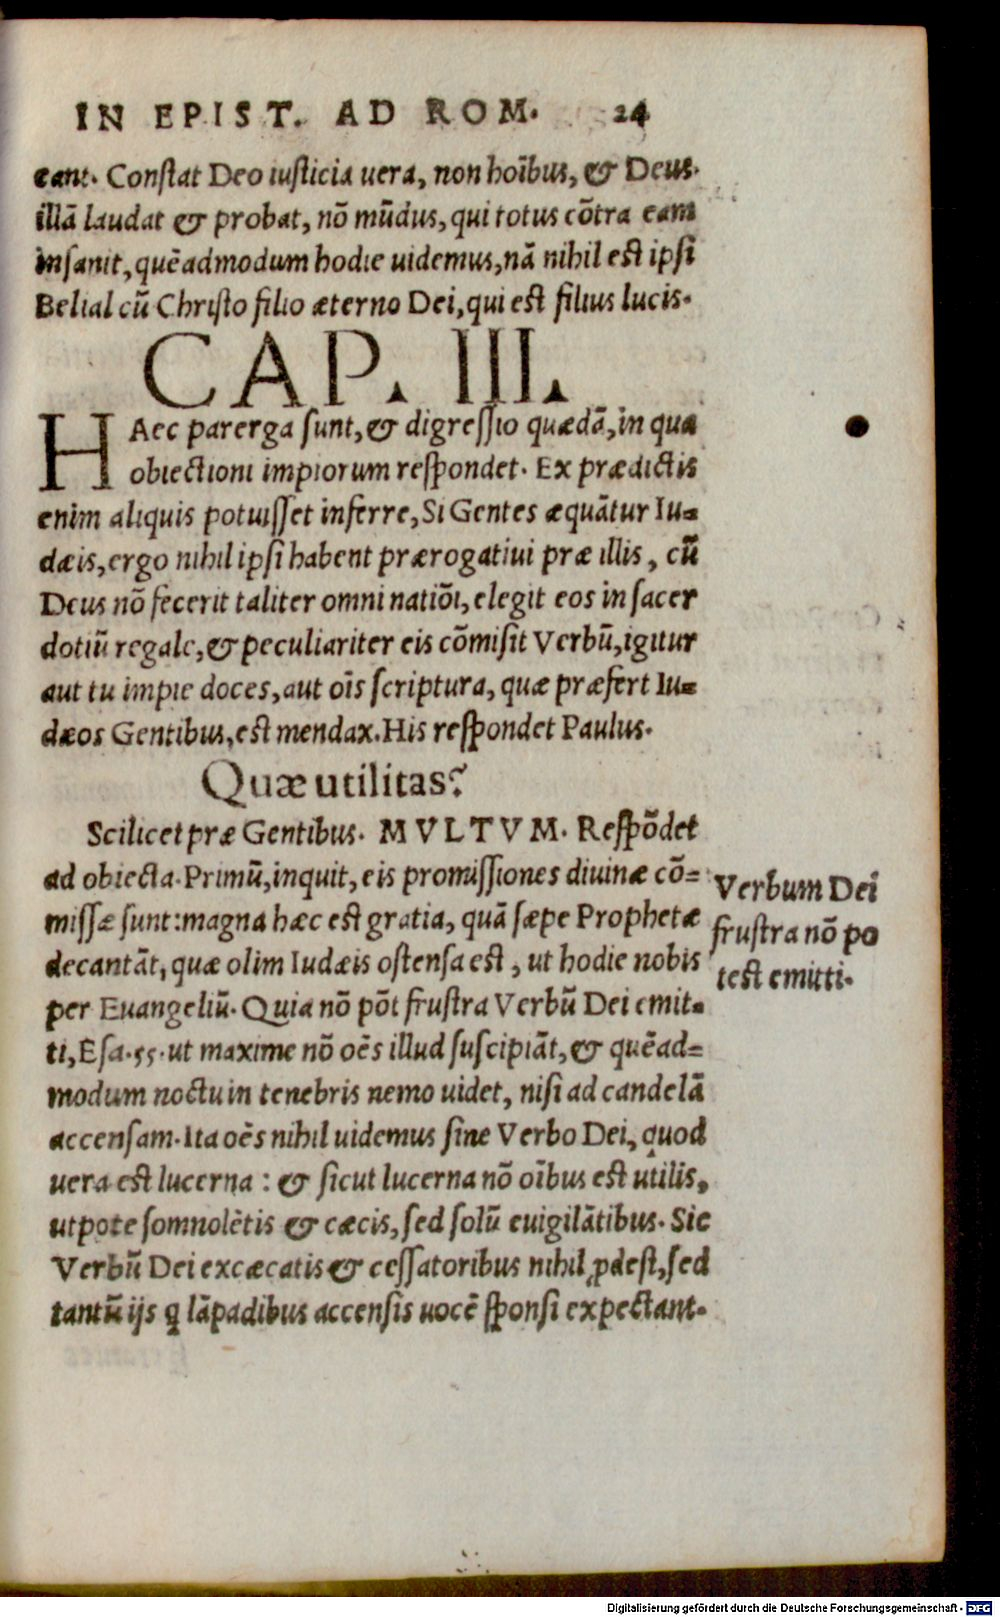 IN EPIST. AD ROM. 24
eant. Constat Deo iusticia uera, non hoĩbus, & Deus
illã laudat & probat, nõ mũdus, qui totus cõtra eam
insanit, quẽadmodum hodie uidemus, nã nihil est ipsi
Belial cũ Christo filio æterno Dei, qui est filius lucis.
CAP. III.
HAec parerga sunt, & digressio quædã, in qua
obiectioni impiorum respondet. Ex prædictis
enim aliquis potuisset inferre, Si Gentes æquãtur Iu=
dæis, ergo nihil ipsi habent prærogatiui præ illis, cũ
Deus nõ fecerit taliter omni natiõi, elegit eos in sacer
dotiũ regale, & peculiariter eis cõmisit Verbũ, igitur
aut tu impie doces, aut oĩs scriptura, quæ præfert Iu=
dæos Gentibus, est mendax. His respondet Paulus.
Quæ utilitas?
Scilicet præ Gentibus. MVLTVM. Respõdet
ad obiecta. Primũ, inquit, eis promissiones diuinæ cõ=
missæ sunt: magna hæc est gratia, quã sæpe Prophetæ
decantãt, quæ olim Iudæis ostensa est, ut hodie nobis
per Euangeliũ. Quia nõ põt frustra Verbũ Dei emit=
ti, Esa. 55. ut maxime nõ oẽs illud suscipiãt, & quẽad=
modum noctu in tenebris nemo uidet, nisi ad candelã
accensam. Ita oẽs nihil uidemus sine Verbo Dei, quod
uera est lucerna: & sicut lucerna nõ oĩbus est utilis,
utpote somnolẽtis & cæcis, sed solũ euigilãtibus. Sic
Verbũ Dei excæcatis & cessatoribus nihil ꝓdest, sed
tantũ ijs ꝗ lãpadibus accensis uocẽ sponsi expectant.
Verbum Dei
frustra nõ po
test emitti.
Digitalisierung gefördert durch die Deutsche Forschungsgemeinschaft - DFG